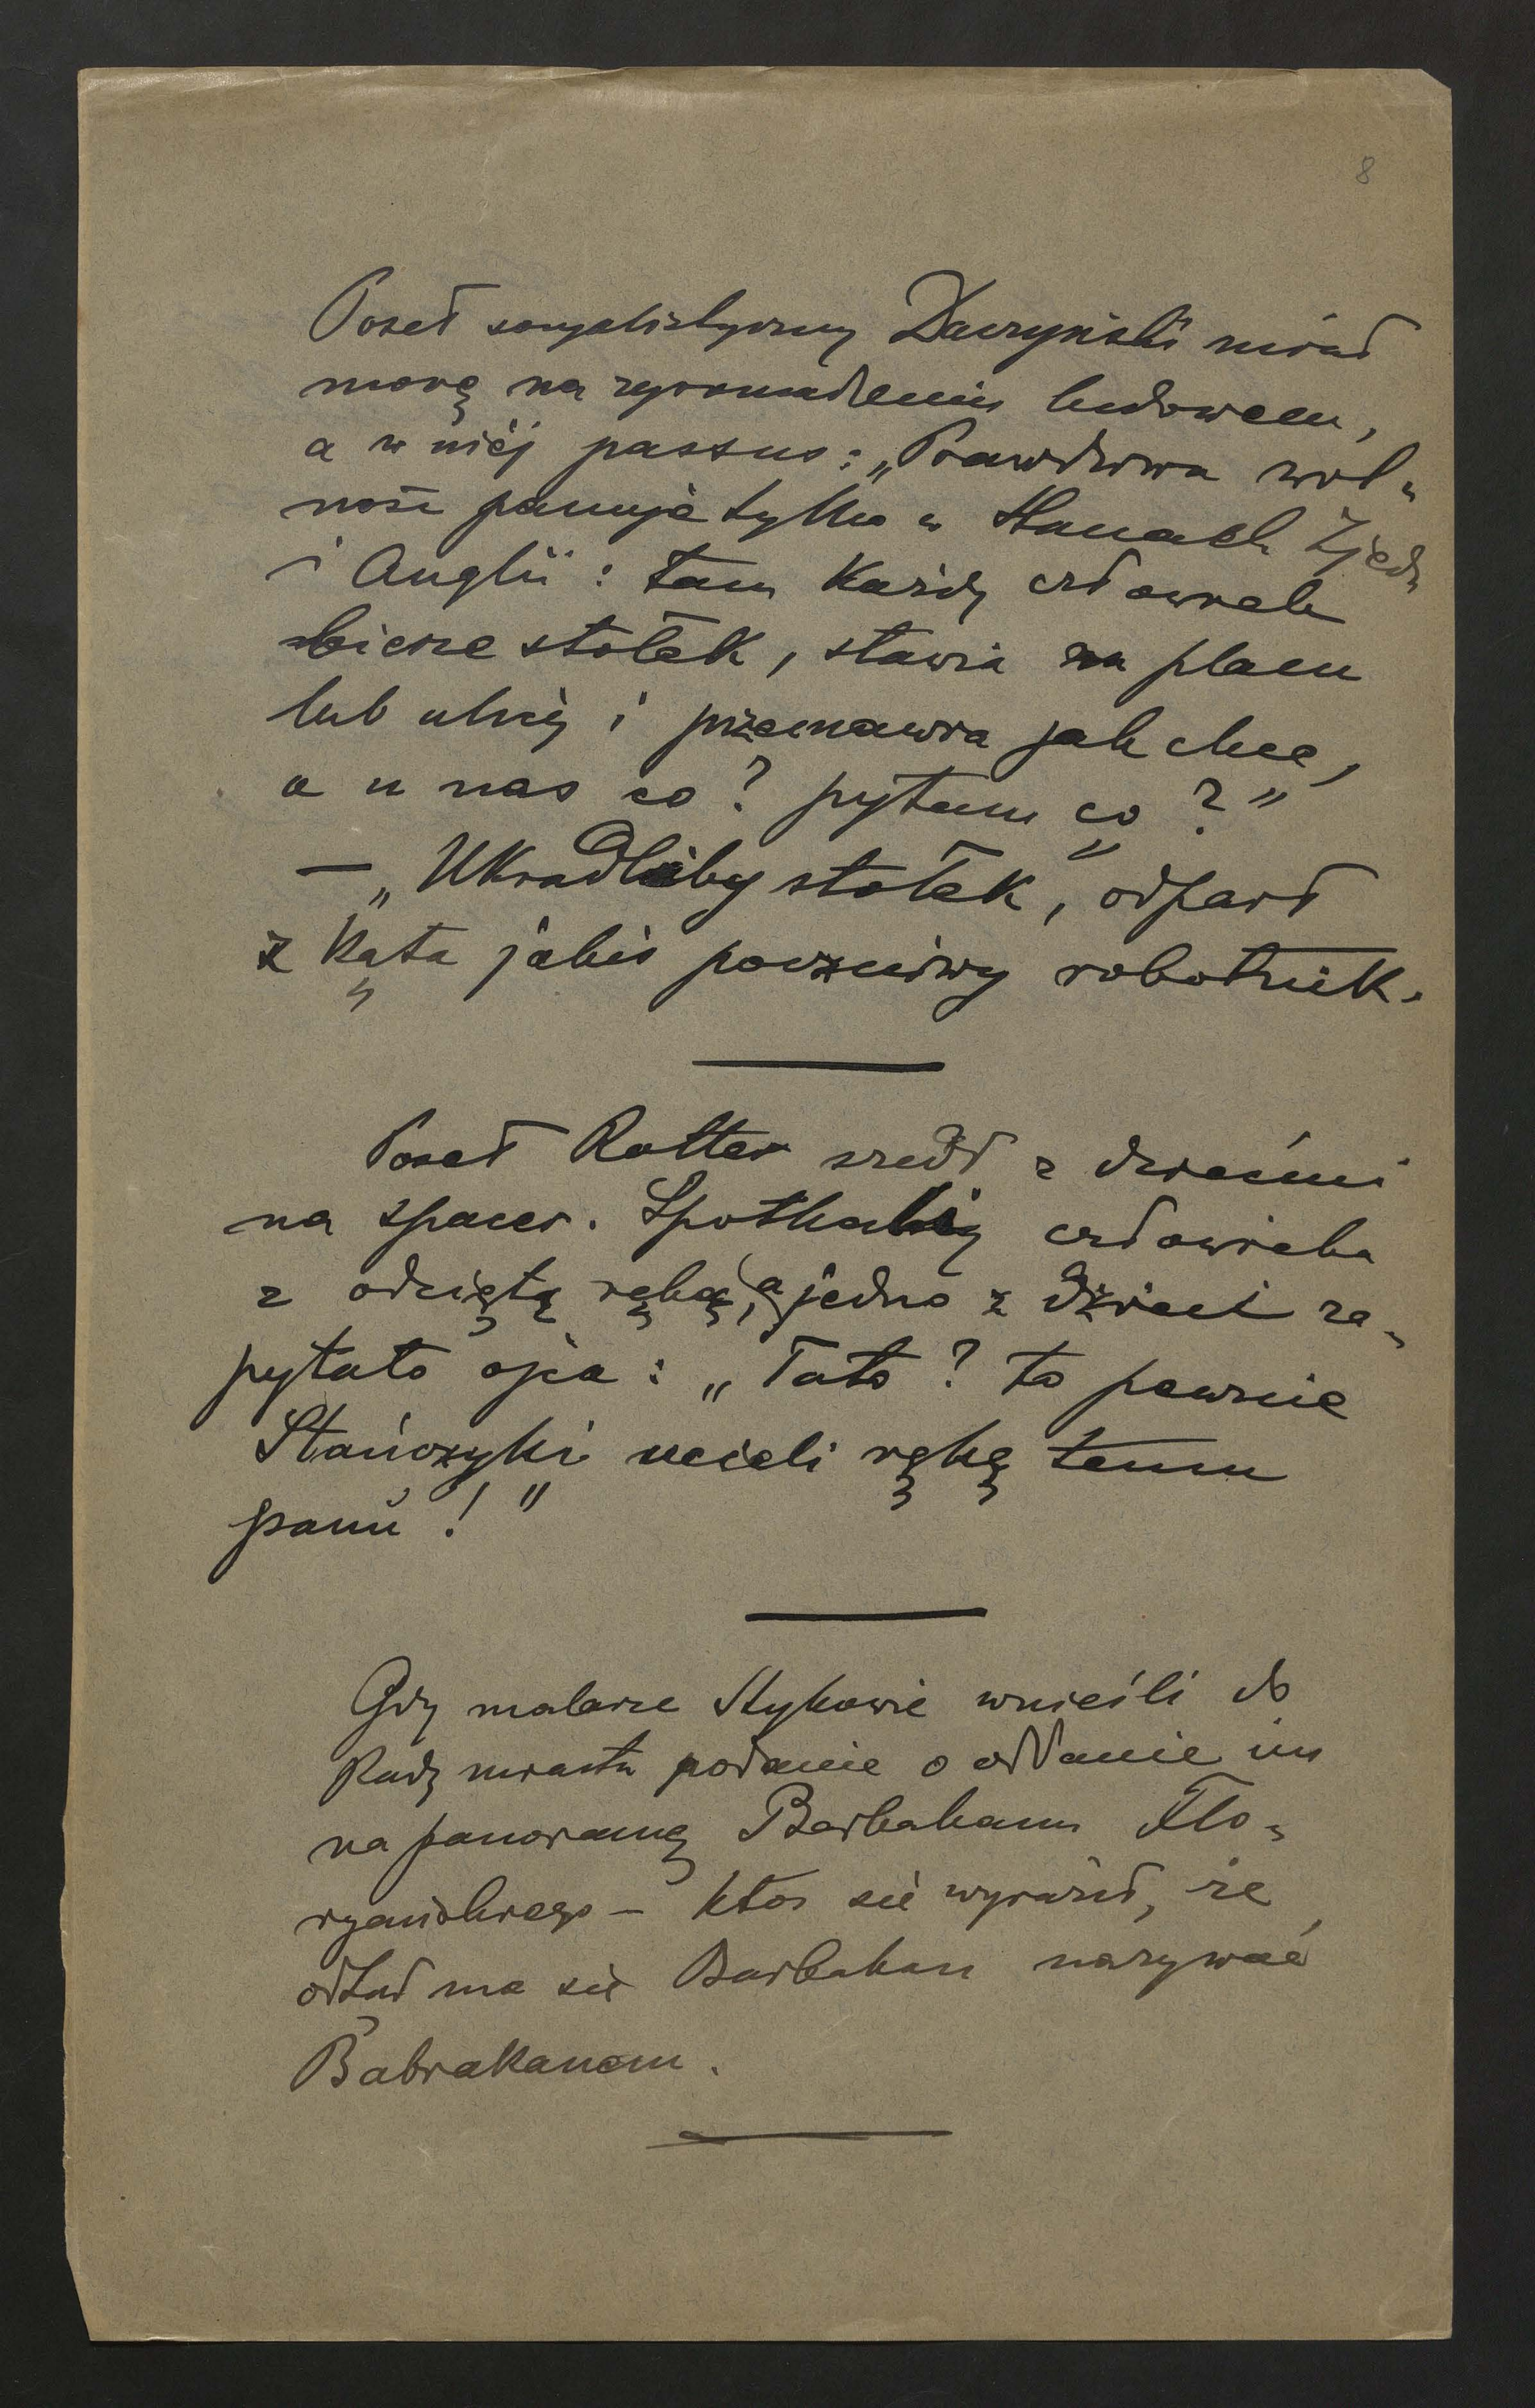 8
Poseł socyalistyczny Daszyński miał
mowę na zgromadzeniu ludowem,
a w niéj passus: „Prawdziwa wol-
ność panuje tylko w Stanach Zjedn
i Anglii: tam każdy człowiek
bierze stołek, stawia na placu
lub ulicy i przemawia jak chce,
a u nas co? pytam co?"
— „Ukradliby stołek", odparł
z kąta jakiś poczciwy robotnik.
Poseł Rotter szedł z dziećmi
na spacer. Spotkali człowieka
z odciętą ręką, a jedno z dzieci za-
pytało ojca: „Tato? to pewnie
Stańczyki ucięli rękę temu
panu!"
Gdy malarze Stykowie wnieśli do
Rady miasta podanie o oddanie im
na panoramę Barbakanu Flo-
ryańskiego – ktoś się wyraził, że
odtąd ma się Barbakan nazywać
Babrakanem.